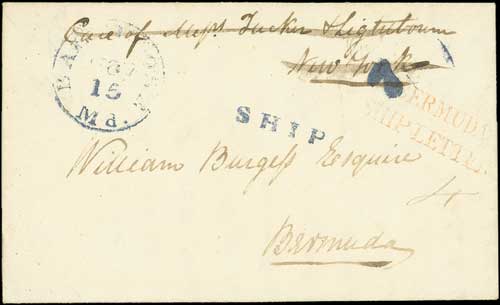 Care of Messrs. Tucker & Lightbourn
New York
BALTIMORE
15
Md.
SHIP
BERMUDA
SHIP LETTER
William Burgess Esquire
4
Bermuda